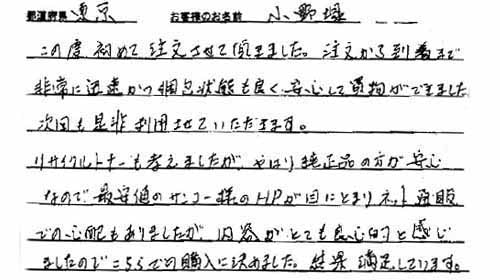 都道府県 東京 お客様のお名前 小野塚
この度初めて注文させて頂きました。注文から到着まで
非常に迅速かつ梱包状態も良く、安心して買物ができました
次回も是非利用させていただきます。
リサイクルトナーも考えましたが、やはり純正品の方が安心
なので、最安値のサンコー様のHPが目にとまりネット通販
での心配もありましたが、内容がとても良心的と感じ
ましたのでこちらでの購入に決めました。結果満足しています。